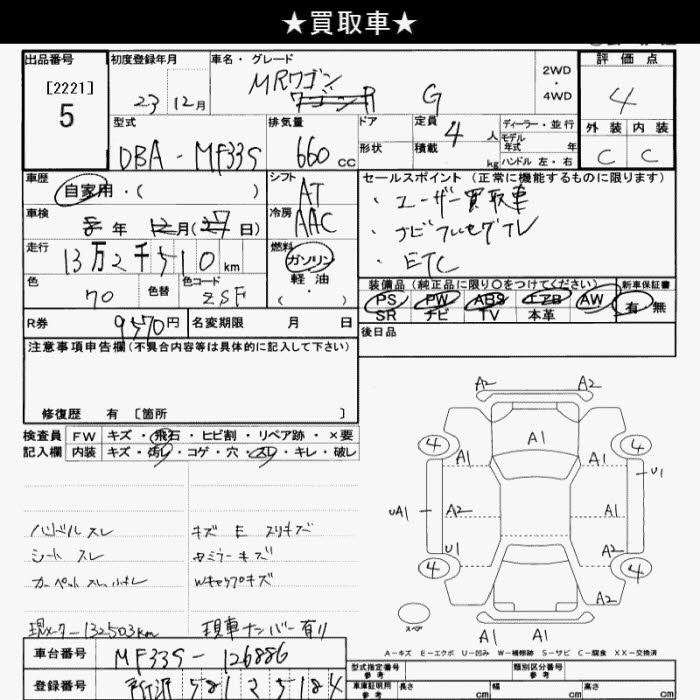 ★買取車★
出品番号
[2221]
5
初度登録年月
23 12月
車名・グレード
MRワゴン
G
2WD
・
4WD
評価点
4
外装 内装
C C
型式
DBA - MF33S
排気量
660 CC
ドア
形状
定員
4人
積載
kg
ディーラー・並行
モデル
年式 年
ハンドル 左・右
車歴
自家用・( )
シフト
AT
セールスポイント (正常に機能するものに限ります)
・ユーザー買取車
・ナビフルセグTV
・ETC
車検
年 月( 日)
冷房
AAC
走行
13万2千510km
燃料
ガソリン
軽油
( ・ )
色
70
色替
色コード
ZSF
装備品 (純正品に限り○をつけてください)
PS PW ABS エアB AW
SR ナビ TV 本革
新車保証書
有・無
R券
9570円
名変期限 月 日
後日品
注意事項申告欄(不具合内容等は具体的に記入して下さい)
修復歴 有 [箇所 ]
検査員
記入欄
FW キズ・飛石・ヒビ割・リペア跡・×要
内装 キズ・汚レ・コゲ・穴・スレ・キレ・破レ
ハンドル スレ
シート スレ
カーペット スレ
キズ E スリキズ
Wキャップキズ
現メーター132503km
現車ナンバー有り
A2 A2
A1
4 4
A1 A1
U1
UA1 A2 A1
U1 A2
4 4
A2
スペア
A1 A1
A-キズ E-エクボ U-凹み W-補修跡 S-サビ C-腐食 XX-交換済
車台番号
MF33S - 126886
登録番号
581 5184
型式指定番号
参考
類別区分番号
参考
車庫証明用
参考
長さ cm
幅 cm
高さ cm